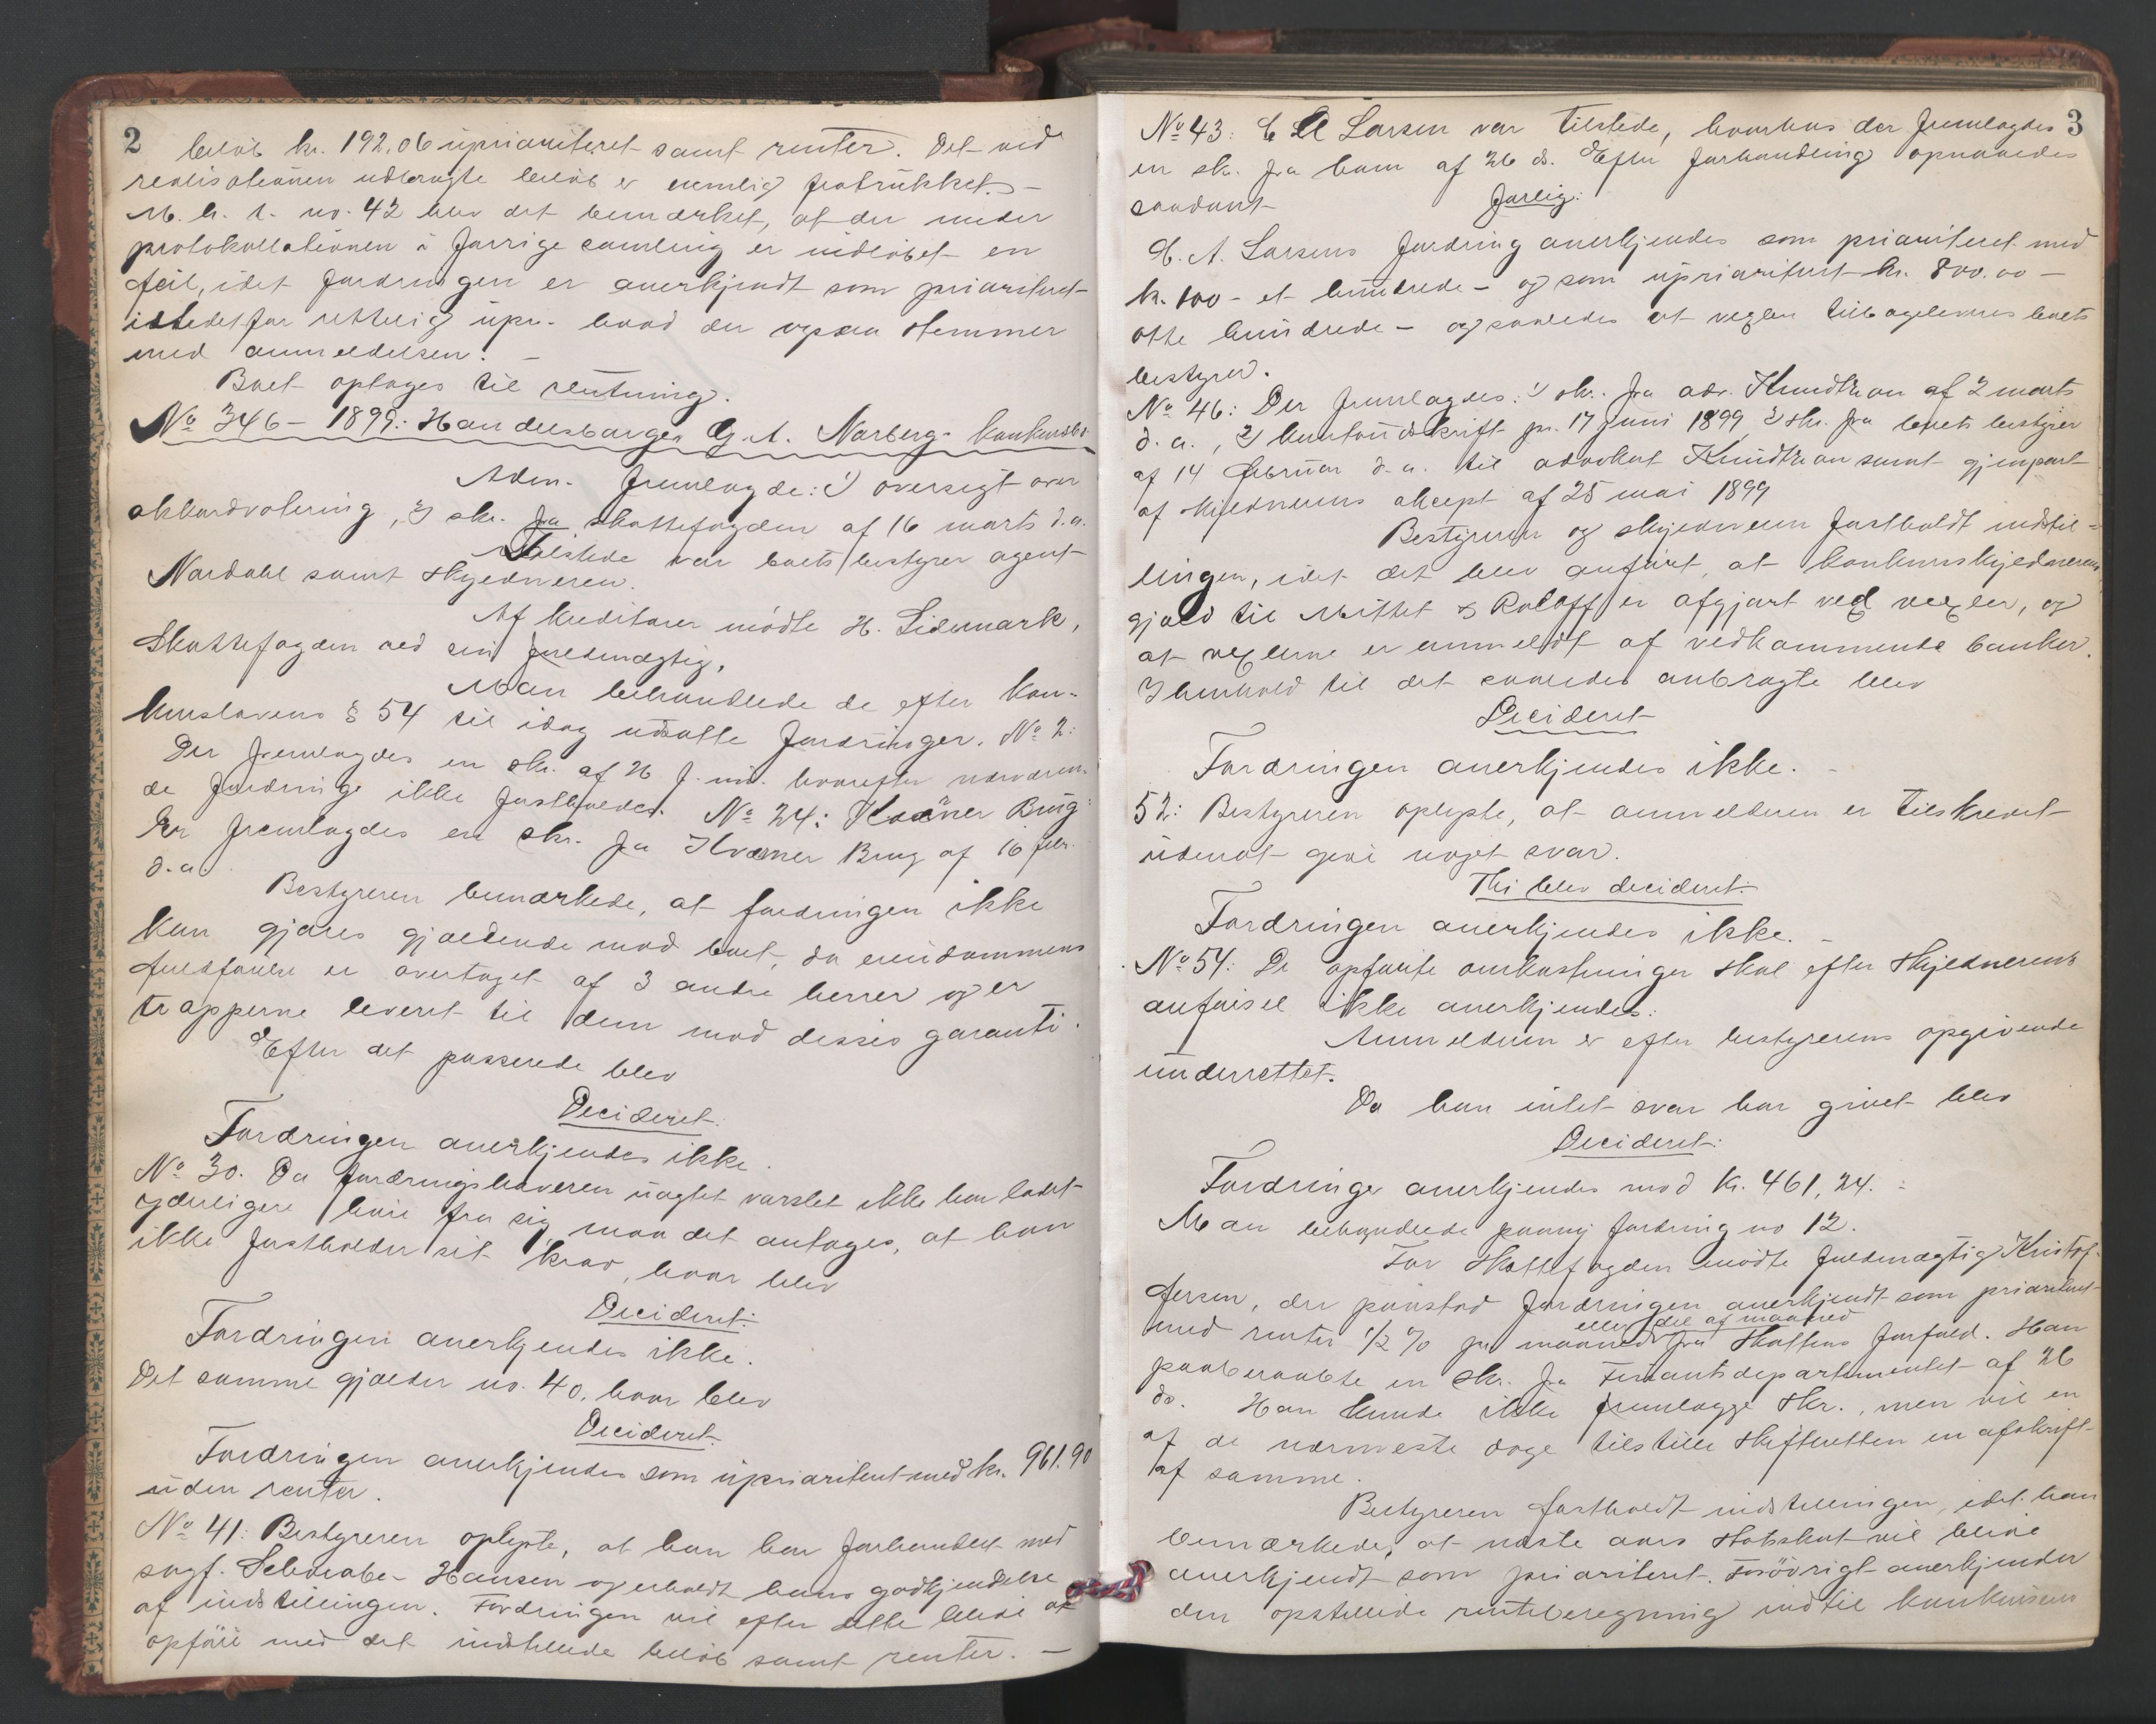 2
beløb kr. 192,06 uprioriteret samt renter. Det ved
realisationen udbragte beløb er nemlig fratrukket. -
M. h. t. no. 42 blev det bemærket, at der under
protokollationen i forrige samling er indløbet en
feil, idet fordringen er anerkjendt som prioriteret
istedetfor rettelig upr. hvad der ogsaa stemmer
med anmeldelsen. -
Boet optages til slutning.
No 346 - 1899: Handelsborger G. A. Norbergs konkursbo.
Adm. fremlagde: 1) oversigt over
akkordvotering, 2) skr. fra skattefogden af 16 marts d.a.
Tilstede var boets bestyrer agent
Nordahl samt skyldneren.
Af kreditorer mødte H. Lidemark,
Skattefogden ved sin fuldmægtig.
Man behandlede de efter kon-
kurslovens § 54 til idag udsatte fordringer. No 2:
Der fremlagdes en skr. af 26 f. m. hvorefter nærværen-
de fordring ikke fastholdes. No 24: Kværner Brug:
Der fremlagdes en skr. fra Kværner Brug af 16 febr.
d.a.
Bestyreren bemærkede, at fordringen ikke
kan gjøres gjældende mod boet, da eiendommens
fuldførelse er overtaget af 3 andre herrer og er
trapperne leveret til dem mod disses garanti.
Efter det passerede blev
Decideret:
Fordringen anerkjendes ikke.
No 30. Da fordringshaveren uagtet varslet ikke har ladet
yderligere høre fra sig, maa det antages, at han
ikke fastholder sit krav, hvor blev
Decideret:
Fordringen anerkjendes ikke.
Det samme gjælder no. 40, hvor blev
Decideret:
Fordringen anerkjendes som uprioriteret med kr. 961.90
uden renter.
No 41: Bestyreren oplyste, at han har forhandlet med
sagf. Schwabe-Hansen og erholdt hans godkjendelse
af indstillingen. Fordringen vil efter dette blive at
opføre med det indstillede beløb samt renter. -
3
No 43: C A Larsen var tilstede, hvorhos der fremlagdes
en skr. fra ham af 26 ds. Efter forhandling opnaaedes
saadant
forlig:
C. A. Larsens fordring anerkjendes som prioriteret med
kr. 100 - et hundrede - og som uprioriteret kr. 800.00 -
otte hundrede - og saaledes at vexlen tilbageleveres boets
bestyrer.
No 46: Der fremlagdes: 1) skr. fra adv. Knudtzon af 2 marts
d.a., 2) kontoudskrift pr. 17 juni 1899, 3) skr. fra boets bestyrer
af 14 februar d.a. til advokat Knudtzon samt gjenpart
af skyldnerens akcept af 25 mai 1899
Bestyreren og skyldneren fastholdt indstil-
lingen, idet det blev anført, at konkursskyldnerens
gjæld til Mittet & Roloff er afgjort ved vexler, og
at vexlerne er anmeldt af vedkommende banker.
I henhold til det saaledes anbragte blev
Decideret
Fordringen anerkjendes ikke. -
52: Bestyreren oplyste, at anmelderen er tilskrevet
uden at give noget svar.
Thi blev decideret:
Fordringen anerkjendes ikke. -
No 54: De opførte omkostninger skal efter skyldnerens
anførsel ikke anerkjendes.
Anmelderen er efter bestyrerens opgivende
underrettet.
Da han intet svar har givet blev
Decideret:
Fordringen anerkjendes med kr. 461,24.
Man behandlede paany fordring no 12.
For Skattefogden mødte fuldmægtig Kristof-
fersen, der paastod fordringen anerkjendt som prioriteret
eller del af maaned
med renter 1/2 % pr. maaned fra skattens forfald. Han
paaberaabte en skr. fra Finantsdepartementet af 26
ds. Han kunde ikke fremlægge skr., men vil en
af de nærmeste dage tilstille Skifteretten en afskrift
af samme.
Bestyreren fastholdt indstillingen, idet han
bemærkede, at næste aars statsskat vil blive
anerkjendt som prioriteret. Forøvrigt anerkjendes
den opstillede renteberegning indtil konkursens